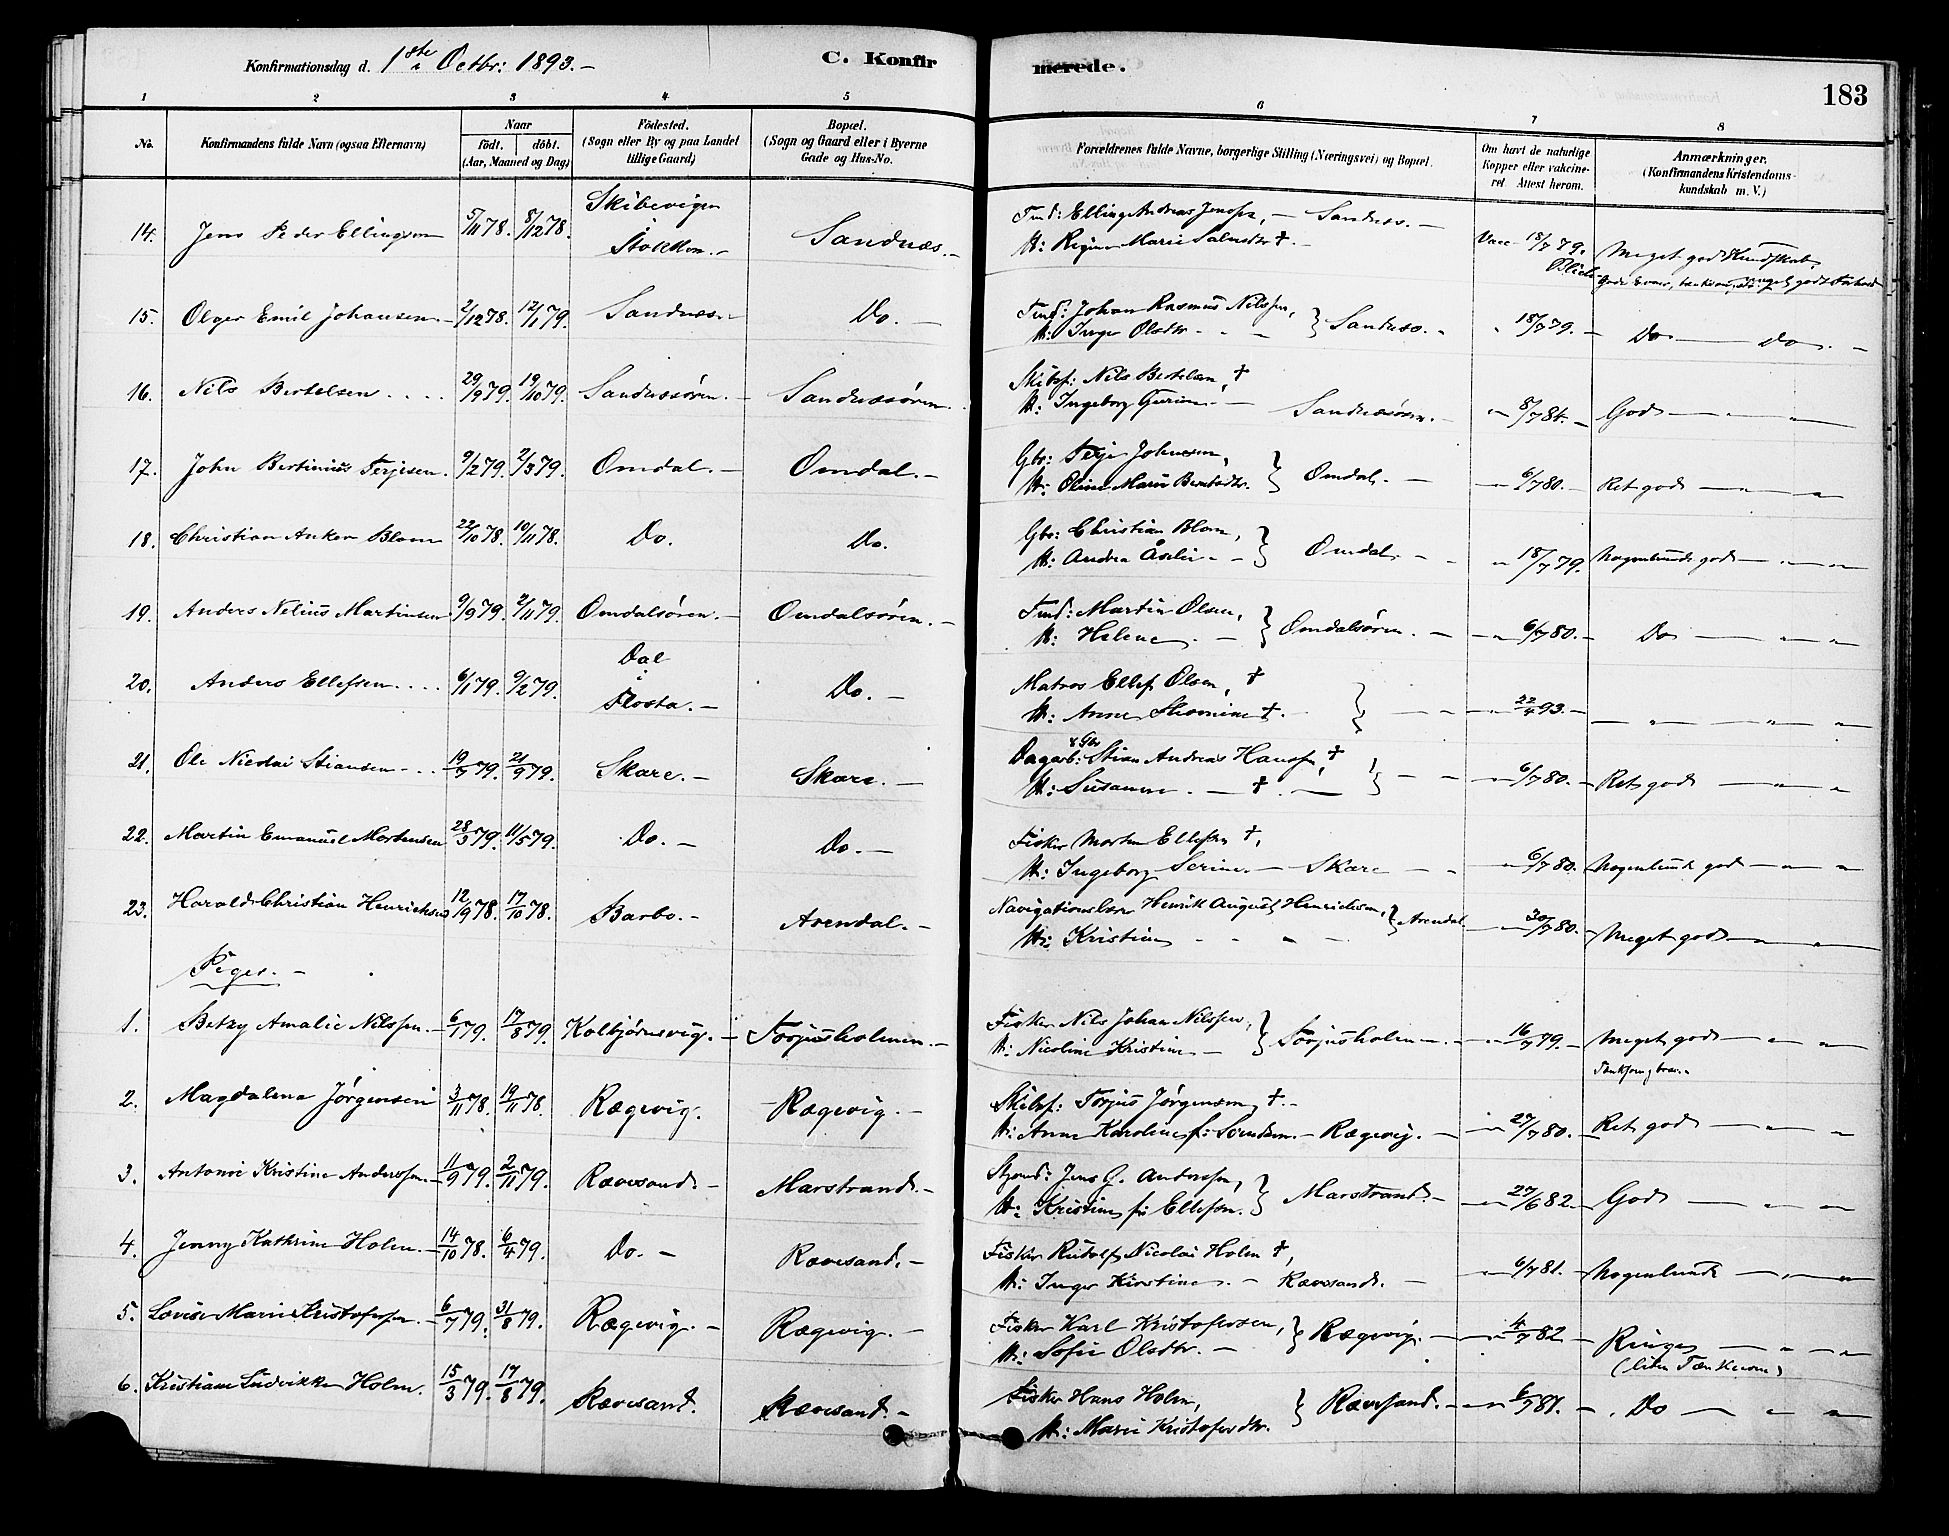 Konfirmationsdag d. 1ste Octbr: 1893. –
C. Konfirmerede.
183
1 2 3 4 5 6 7 8
No.
Konfirmandens fulde Navn (ogsaa Efternavn)
Naar
født. døbt.
(Aar, Maaned og Dag)
Födested.
(Sogn eller By og paa Landet tillige Gaard)
Bopæl.
(Sogn og Gaard eller i Byerne Gade og Hus-No.
Forældrenes fulde Navne, borgerlige Stilling (Næringsvei) og Bopæl.
Om havt de naturlige Kopper eller vakcineret Attest herom.
Anmærkninger.
(Konfirmandens Kristendomskundskab m. V.)
14. Jens Peder Ellingsen 5/11 78. 8/12 78. Skibevigen i Stokken. – Sandnæs. – Elling Andreas Jensen, – Sandnæs. –
M: Regine Marie Salvesdtr †. – Vacc. 18/7 79. Meget god Kundskab,
15. Olger Emil Johansen – 2/12 78. 12/1 79. Sandnæs. – Do. – Johan Rasmus Nilssen,
M: Inger Olsdtr. } Sandnæs. – " 18/7 79. – Do — do. –
16. Nils Bertelsen . . . . 29/9 79. 19/10 79. Sandnæssøren. – Sandnæssøren. Skibsf: Nils Bertelsen, †
M: Ingeborg Gurine. – Sandnæssøren. – – 8/7 84. – God — " — "
17. John Bertinius Terjesen. 9/2 79. 2/3 79. Omdal. – Omdal. – Gbr: Terje Johnsen,
M: Oline Marie Berntsdtr. } Omdal. – – 6/7 80. – Ret god — " — "
18. Christian Anker Blom 22/10 78. 10/11 78. Do. Do. Gbr: Christian Blom,
M: Andrea Åslin – – } Omdal. – – " 18/7 79. Nogenlunde god — " — "
19. Anders Nelius Martinsen 9/9 79. 2/11 79. Omdalsøren. – Omdalsøren. – Martin Olsen,
M: Helene. – } Omdalsøren. – – 6/7 80. – Do — " — "
20. Anders Ellefsen. . . . 6/1 79. 9/2 79. Dal i Flosta. – Do. – Matros Ellef Olsen, †
M: Anne †. – } – – – 22/4 93. – — " — " — "
21. Ole Nicolai Stiansen – . . 19/7 79. 21/9 79. Skare. – Skare. – Dagarb: & Gbr Stian Andreas Hansen, †
M: Susanne. – † – } – – – 6/7 80. – Ret god — " — "
22. Martin Emanuel Mortensen 28/3 79. 11/5 79. Do. – Do. – Fisker Morten Ellefsen †,
M: Ingeborg Serine. – Skare – – " 6/7 80. Nogenlunde god — " — "
23. Harald Christian Henrichsen 12/9 78. 17/10 78. Barbo. – Arendal. – Navigationslærer Henrik August Henrichsen,
M: Kristine – – – } Arendal – " 30/7 80. – Meget god — " — "
Piger. –
1. Betzy Amalie Nilssen. – 6/1 79. 17/8 79. Kolbjørnsvig. – Torjusholmen. – Fisker Nils Johan Nilssen,
M: Nicoline Kristine – } Torjusholmen. – " 16/7 79. – Meget god — " — "
Tænksom, brav. –
2. Magdalena Jørgensen 3/11 78. 19/11 78. Rægevig. Rægevig. – Skibsf: Torjus Jørgensen, †. –
M: Anne Karoline f: Svendsen. – Rægevig. – " 27/7 80. – Ret god — " — "
3. Antonie Kristine Anderssen. – 11/9 79. 2/11 79. Rævesand. – Marstrand. – Styrmd: Jens G. Anderssen,
M: Kristine f: Ellefsen. } Marstrand. – – 27/6 82. – God — " — "
4. Jenny Kathrine Holm. – 14/10 78. 6/4 79. Do. – Rævesand. – Fisker Rudolf Nicolai Holm †,
M: Inger Kirstine. – Rævesand. – – 6/7 81. – Nogenlunde — " — "
5. Lovise Marie Kristofersen. – 6/7 79. 31/8 79. Rægevig. – Rægevig. – Fisker Karl Kristofersen,
M: Sofie Olsdtr. – } Rægevig. – – 4/7 82 – Ringe — " — "
(liden Tænksom)
6. Kristiane Ludvikke Holm. 15/3 79. 17/8 79. Rævesand. Rævesand. – Fisker Hans Holm,
M: Marie Kristofersdtr. } Rævesand. – – 6/7 81. – . Do — " — "